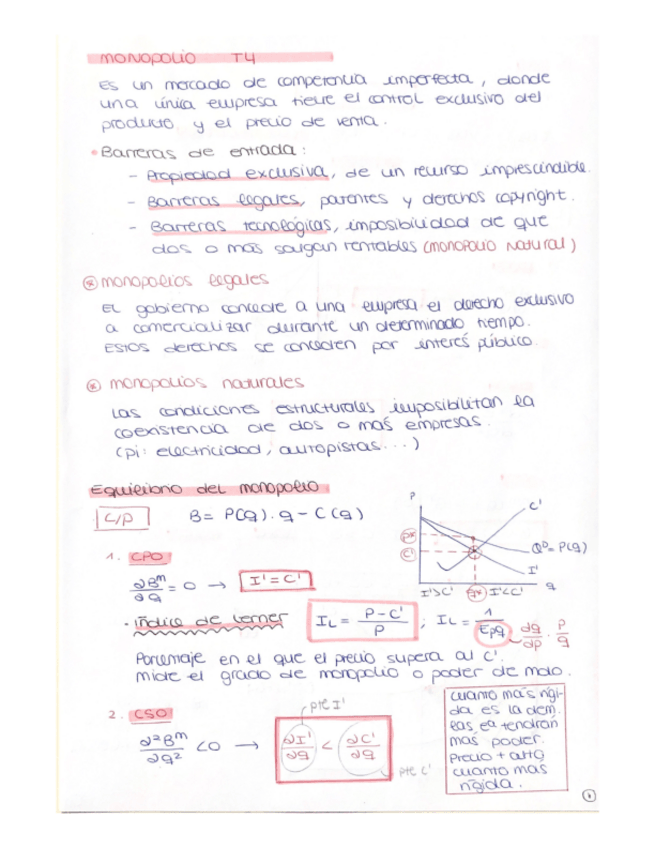 MONOPOLIO T4
Es un mercado de competencia imperfecta, donde
una única empresa tiene el control exclusivo del
producto y el precio de venta.
• Barreras de entrada:
- Propiedad exclusiva, de un recurso imprescindible.
- Barreras legales, patentes y derechos copyright.
- Barreras tecnológicas, imposibilidad de que
dos o más salgan rentables (monopolio natural)
* monopolios legales
El gobierno concede a una empresa el derecho exclusivo
a comercializar durante un determinado tiempo.
Estos derechos se conceden por interés público.
* monopolios naturales
Las condiciones estructurales imposibilitan la
coexistencia de dos o más empresas.
(pi: electricidad, autopistas...)
Equilibrio del monopolio
C/P
B = P(q) · q - C(q)
P
C'
P*
C'
Q^D = P(q)
I'
I'>C' q* I'<C' q
1. CPO
∂B^m/∂q = 0 → I' = C'
· Índice de Lerner I_L = (P - C')/P ; I_L = 1/E_pq
dq/dp · P/q
Porcentaje en el que el precio supera al C'.
mide el grado de monopolio o poder de mdo.
2. CSO
pte I'
∂²B^m/∂q² < 0 → ∂I'/∂q < ∂C'/∂q
pte C'
cuanto más rígi-
da es la dem.
las ea tendrán
más poder.
Precio + alto
cuanto más
rígida.
1